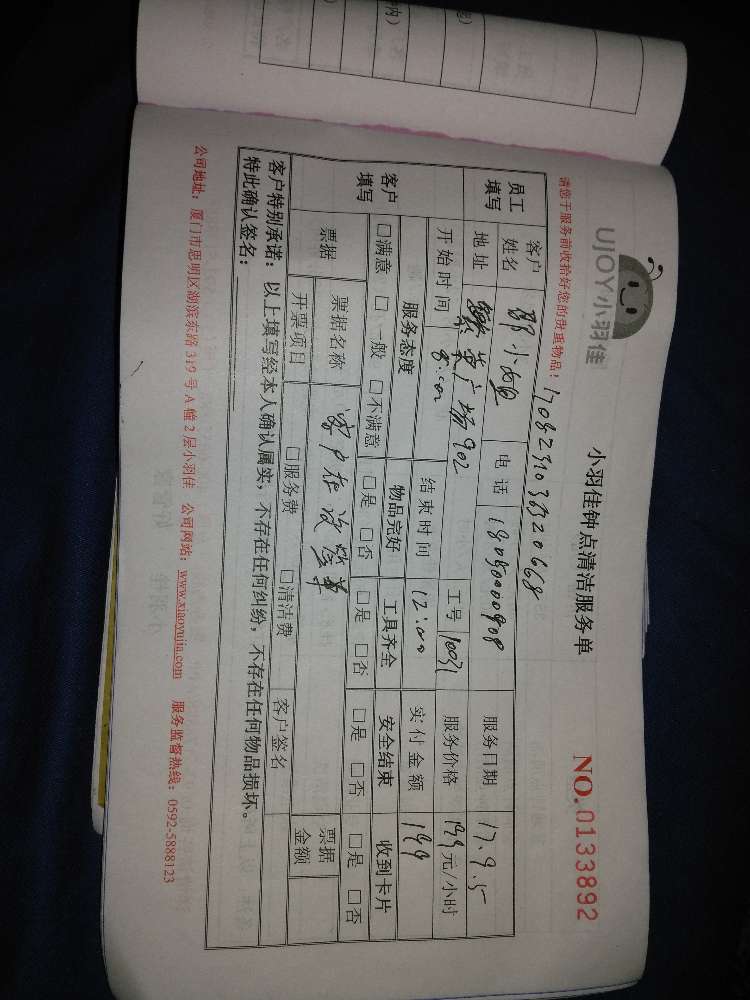 UJOY小羽佳
小羽佳钟点清洁服务单
NO.0133892
请您于服务前收拾好您的贵重物品！
员工填写 客户姓名 小 电话 18050000908 服务日期 17.9.5
地址 广场902 工号 服务价格 199元/小时
开始时间 8:00 结束时间 12:00 实付金额 199
客户填写 服务态度 物品完好 工具齐全 安全结束 收到卡片
□满意 □一般 □不满意 □是 □否 □是 □否 □是 □否 □是 □否
票据 票据名称 客户在没签单 票据金额
开票项目 □服务费 □清洁费 客户签名
客户特别承诺：以上填写经本人确认属实，不存在任何纠纷，不存在任何物品损坏。
特此确认签名：
公司地址：厦门市思明区湖滨东路319号A幢2层小羽佳 公司网站：www.xiaoyujia.com 服务监督热线：0592-5888123